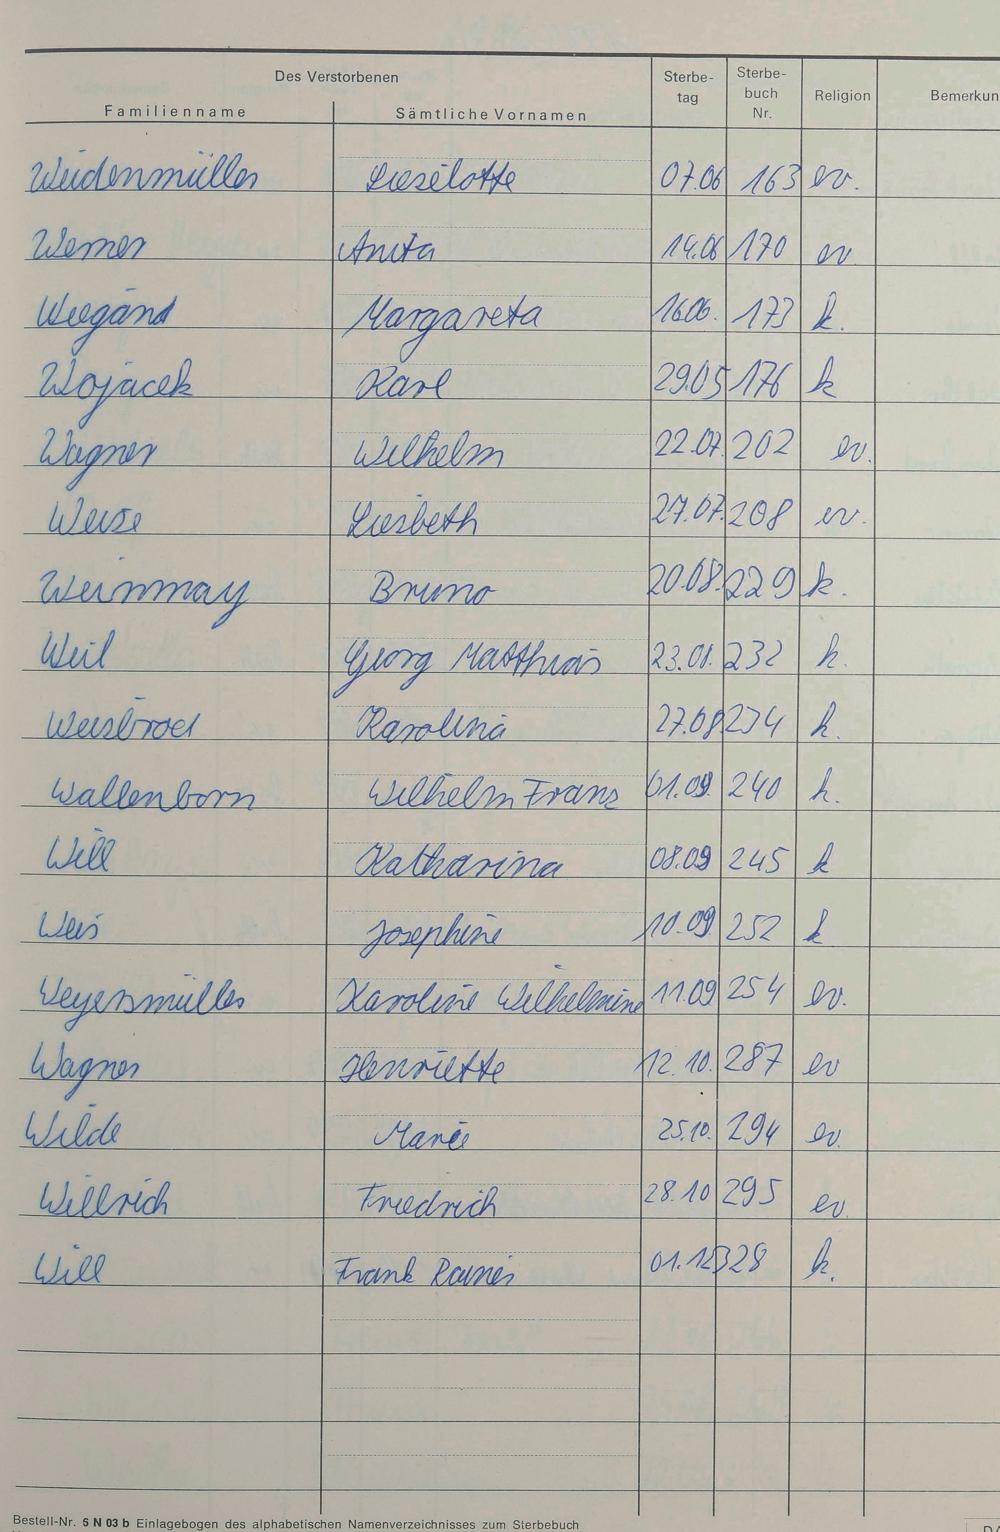 Des Verstorbenen
Familienname Sämtliche Vornamen Sterbe-tag Sterbe-buch Nr. Religion Bemerkun
Weidenmüller Lieselotte 07.06 163 ev.
Werner Anita 14.06 170 ev.
Wiegand Margareta 16.06. 173 k.
Wojacek Karl 29.05 176 k
Wagner Wilhelm 22.07. 202 ev.
Weise Liesbeth 27.07. 208 ev.
Weinmay Bruno 20.08. 229 k.
Weil Georg Matthias 23.08. 232 k.
Weisbrod Karolina 27.08 234 k.
Wallenborn Wilhelm Franz 01.09. 240 k.
Will Katharina 08.09 245 k
Weis Josephine 10.09 252 k
Weyersmüller Karoline Wilhelmine 11.09 254 ev.
Wagner Henriette 12.10. 287 ev
Wilde Marie 25.10. 294 ev.
Willrich Friedrich 28.10 295 ev.
Will Frank Rainer 01.12 328 k.
Bestell-Nr. 5 N 03 b Einlagebogen des alphabetischen Namenverzeichnisses zum Sterbebuch